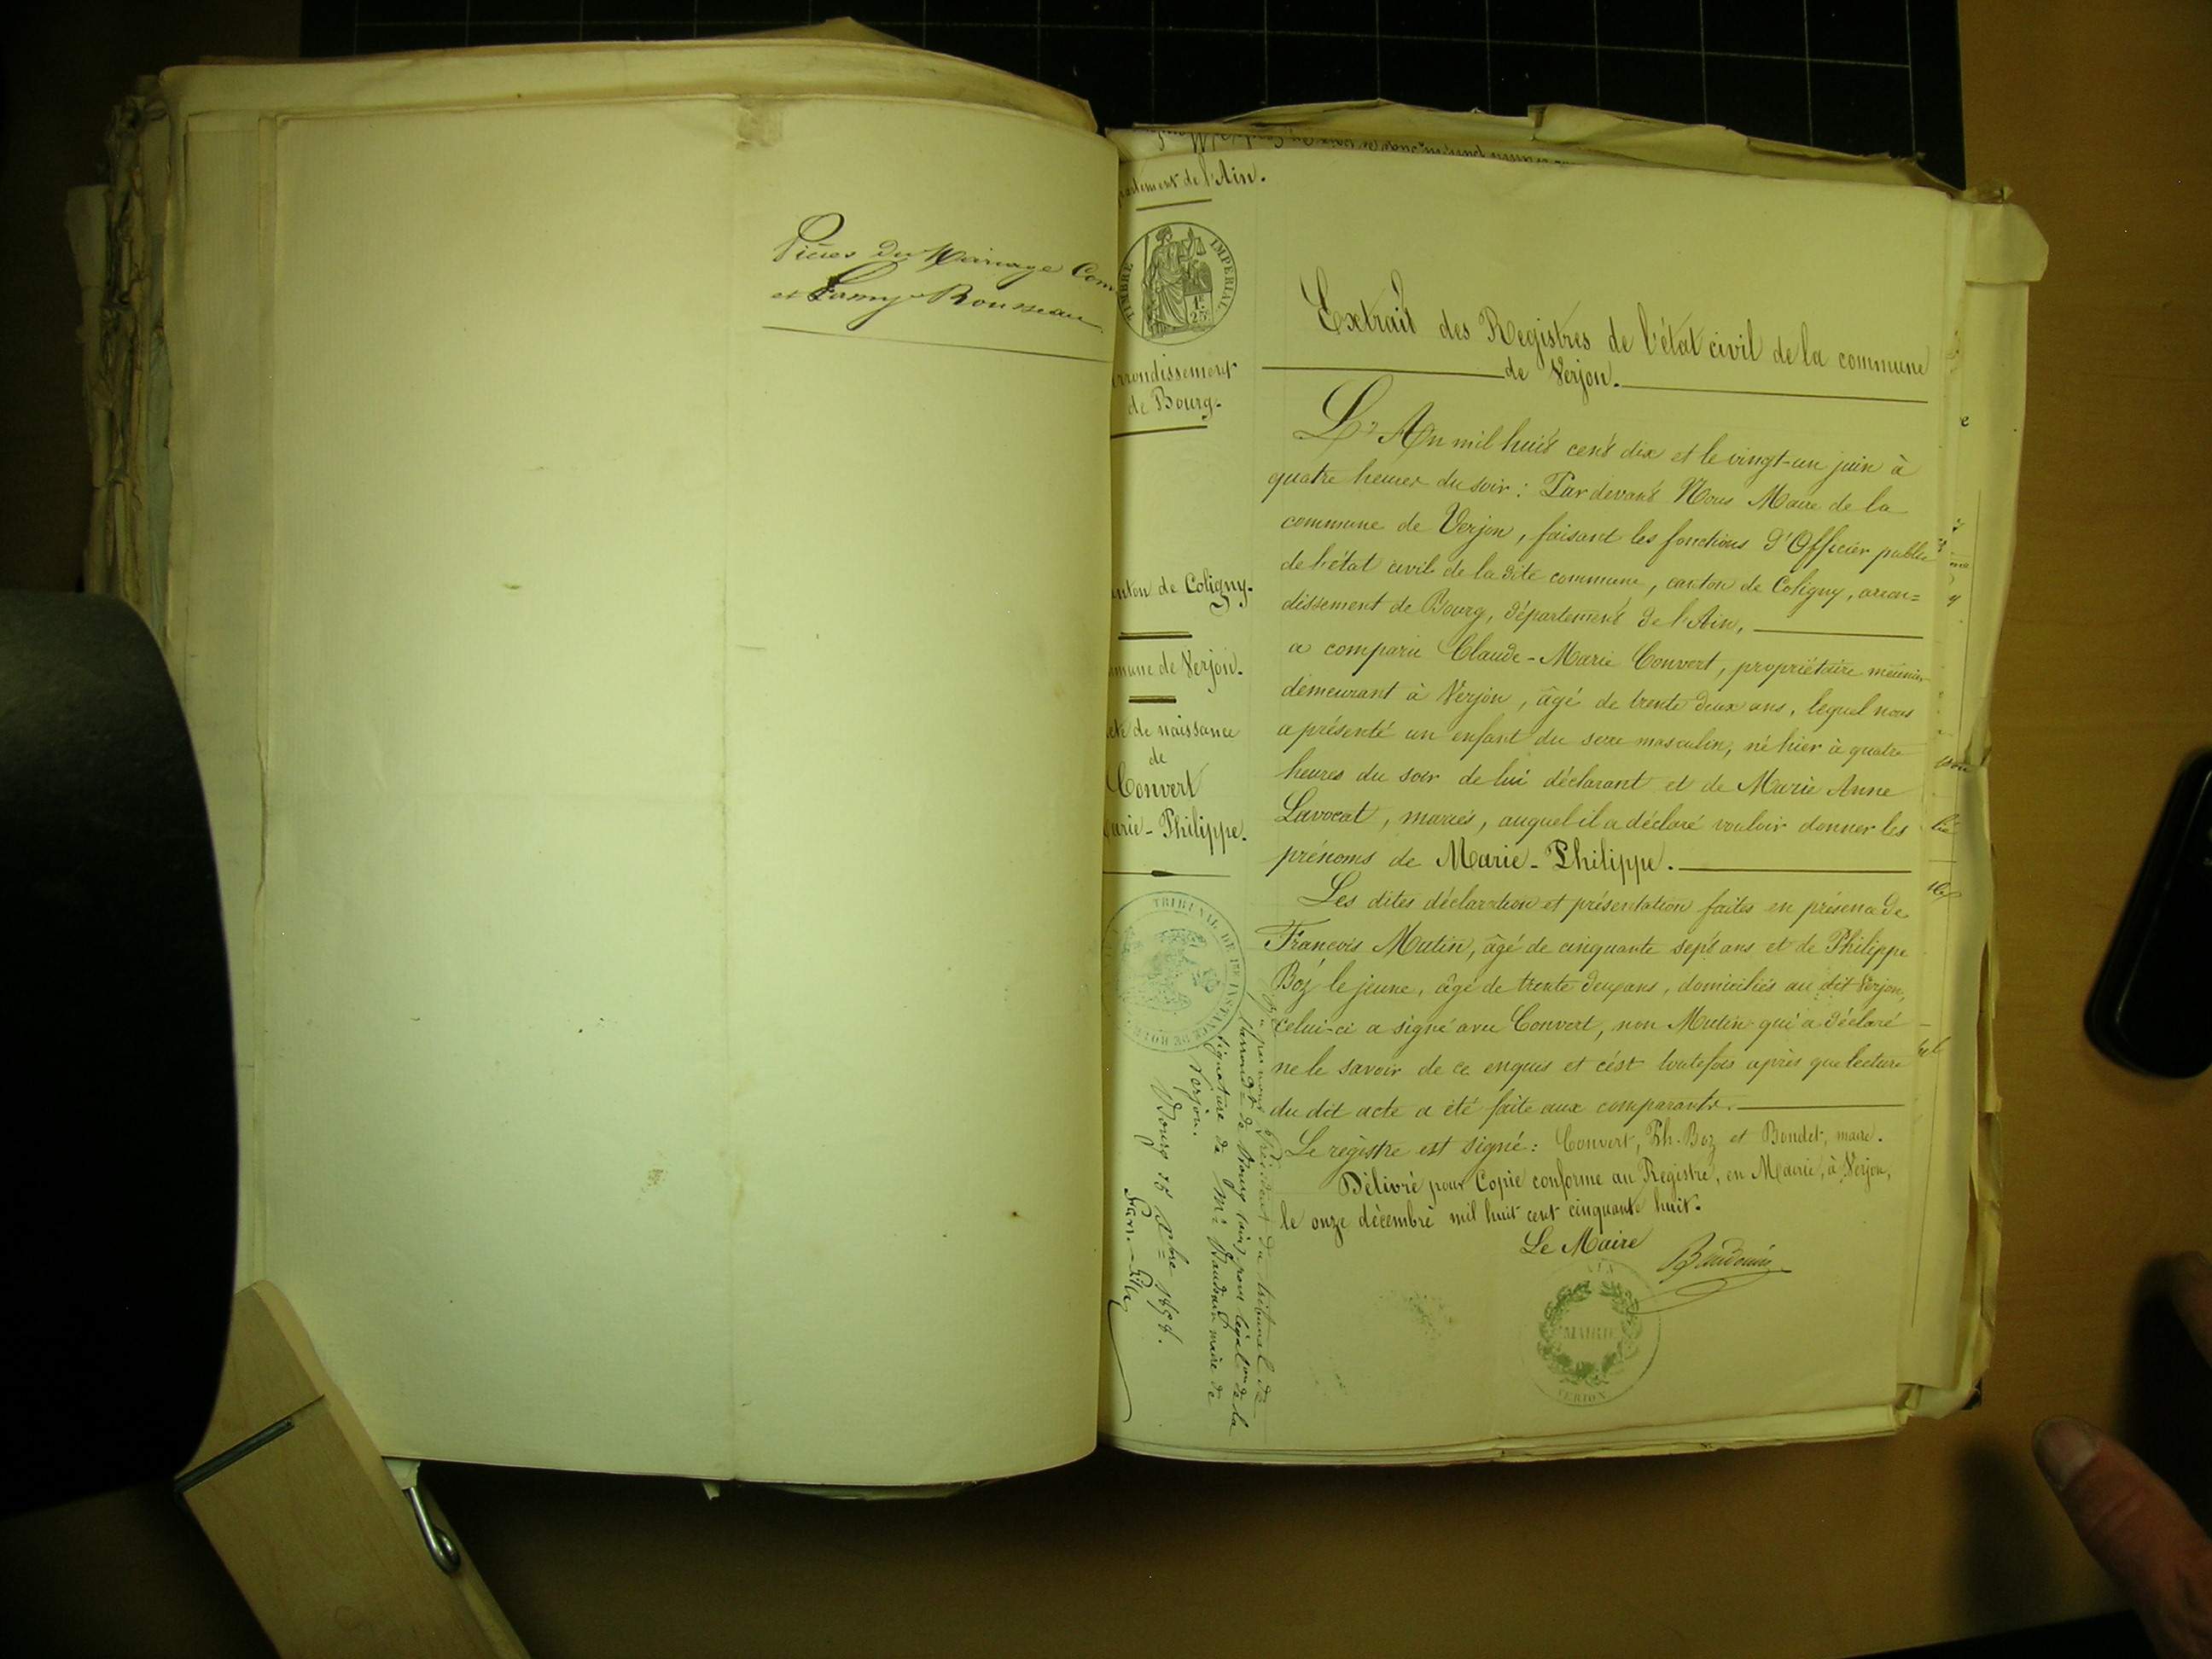 Pièces du Mariage Con
et Lamy-Rousseau
partement de l'Ain.
TIMBRE IMPERIAL
1F.
25
rrondissement
de Bourg.
anton de Coligny.
mmune de Verjon.
cte de naissance
de
Convert
arie-Philippe.
TRIBUNAL DE 1RE INSTANCE
Extrait des Registres de l'état civil de la commune
de Verjon.
L'An mil huit cent dix et le vingt-un juin à
quatre heures du soir : Par devant Nous Maire de la
commune de Verjon, faisant les fonctions d'Officier public
de l'état civil de la dite commune, canton de Coligny, arron=
dissement de Bourg, département de l'Ain,
a comparu Claude-Marie Convert, propriétaire meunier
demeurant à Verjon, âgé de trente deux ans, lequel nous
a présenté un enfant du sexe masculin, né hier à quatre
heures du soir de lui déclarant et de Marie Anne
Lavocat, mariés, auquel il a déclaré vouloir donner les
prénoms de Marie-Philippe.
Les dites déclaration et présentation faites en présence de
François Mutin, âgé de cinquante sept ans et de Philippe
Boz le jeune, âgé de trente deux ans, domiciliés au dit Verjon,
celui-ci a signé avec Convert, non Mutin qui a déclaré
ne le savoir de ce enquis et c'est toutefois après que lecture
du dit acte a été faite aux comparants.
Le registre est signé : Convert, Ph. Boz et Bondet, maire.
Délivré pour Copie conforme au Registre, en Mairie, à Verjon,
le onze décembre mil huit cent cinquante huit.
Le Maire
Baudouin
MAIRIE
VERJON
Vu par nous Président du tribunal de
l'arrondt de Bourg (ain) pour légalon de la
signature de Mr. Baudouin maire de
Verjon.
Bourg 15 Xbre 1858.